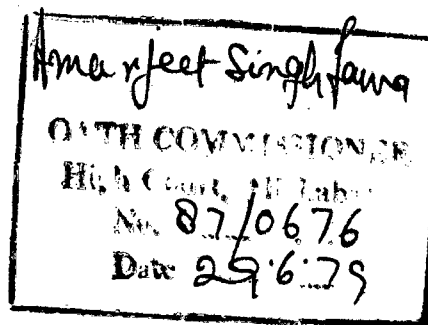 Amarjeet Singh
OATH COMMISSIONER
High Court,
No. 87/0676
Date 29.6.79